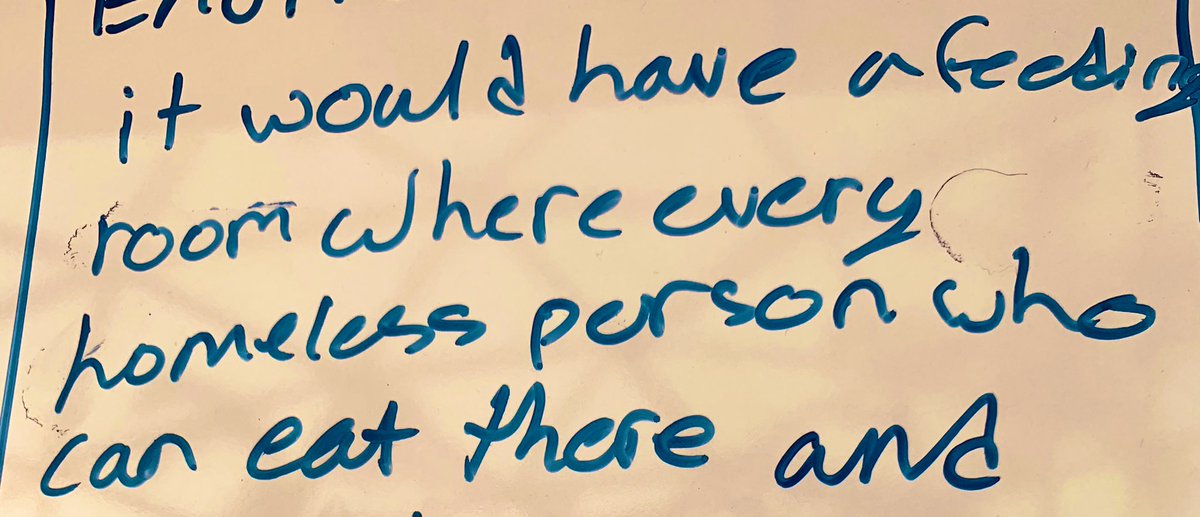 it would have a feeding
room where every
homeless person who
can eat there and